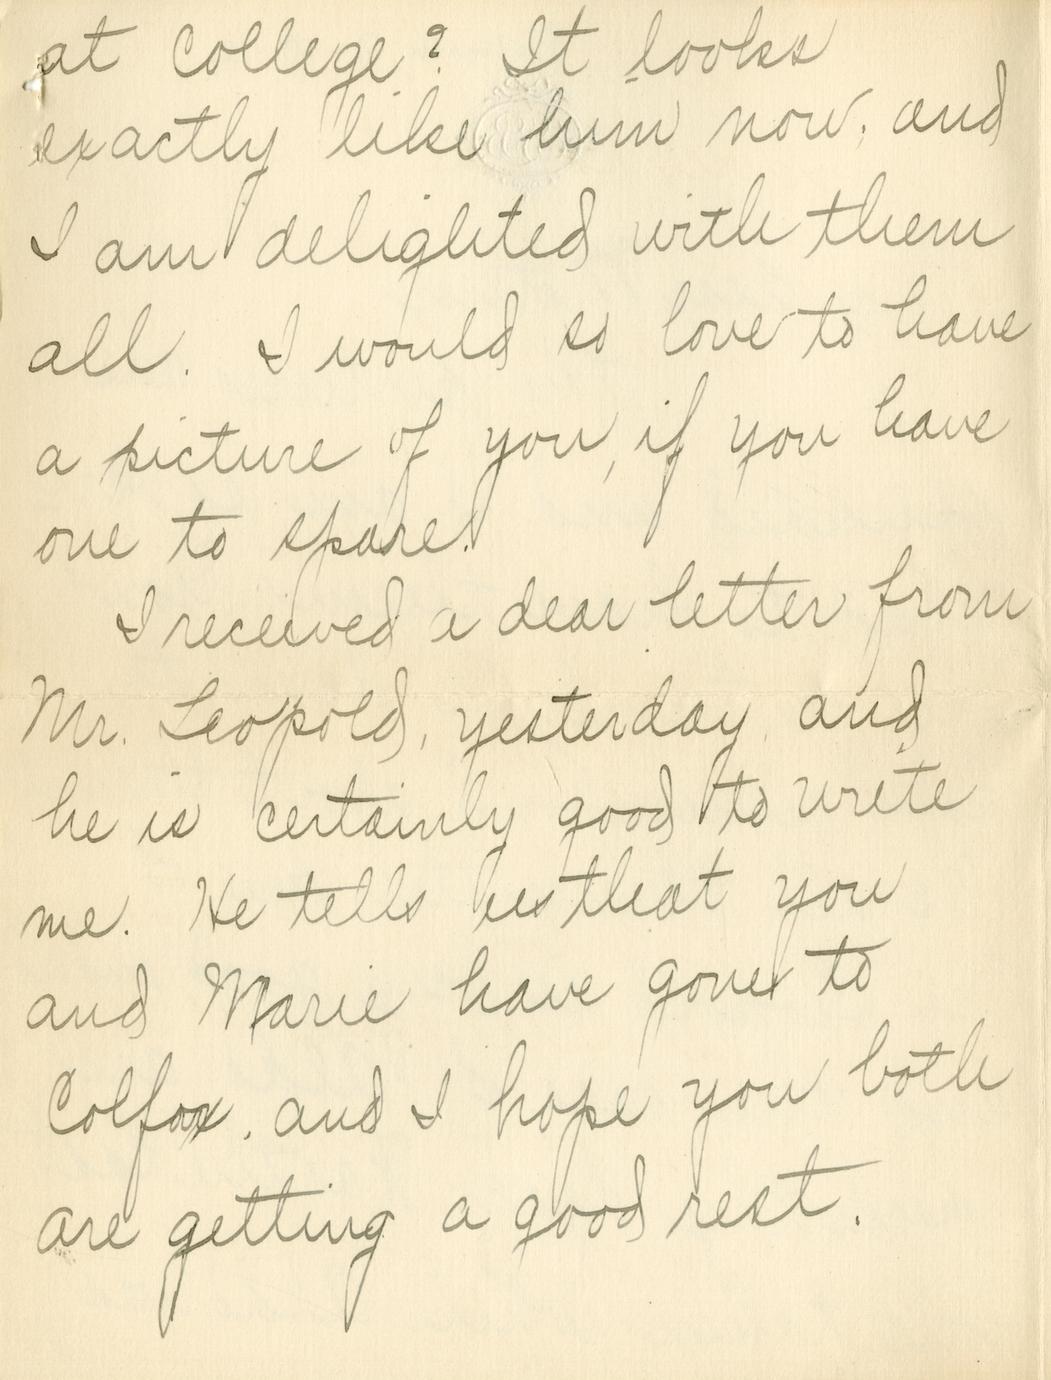 at College? It looks
exactly like him now, and
I am delighted with them
all. I would so love to have
a picture of you, if you have
one to spare.
I received a dear letter from
Mr. Leopold, yesterday, and
he is certainly good to write
me. He tells us that you
and Marie have gone to
Colfax, and I hope you both
are getting a good rest.